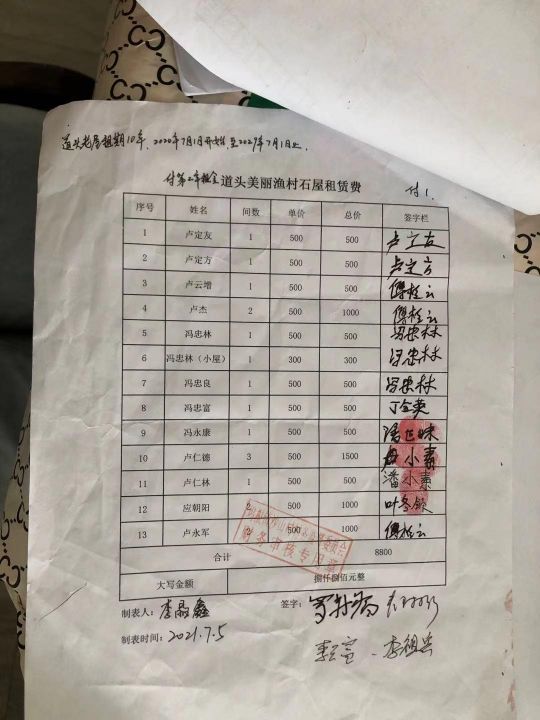 道头老屋租期10年，2020年7月1日开始至2029年7月1日止
付第二年租金 道头美丽渔村石屋租赁费 付1.
序号 姓名 间数 单价 总价 签字栏
1 卢定友 1 500 500 卢定友
2 卢定方 1 500 500 卢定方
3 卢云增 1 500 500 傅桂云
4 卢杰 2 500 1000 傅桂云
5 冯忠林 1 500 500 冯忠林
6 冯忠林（小屋） 1 300 300 冯忠林
7 冯忠良 1 500 500 冯忠林
8 冯忠富 1 500 500 丁金英
9 冯永康 1 500 500
10 卢仁德 3 500 1500 小素
11 卢仁林 1 500 500 潘小素
12 应朝阳 2 500 1000
13 卢永军 2 500 1000 傅桂云
合计 8800
大写金额 捌仟捌佰元整
财务审核专用章
制表人： 签字：
制表时间：2021.7.5
李祖兵